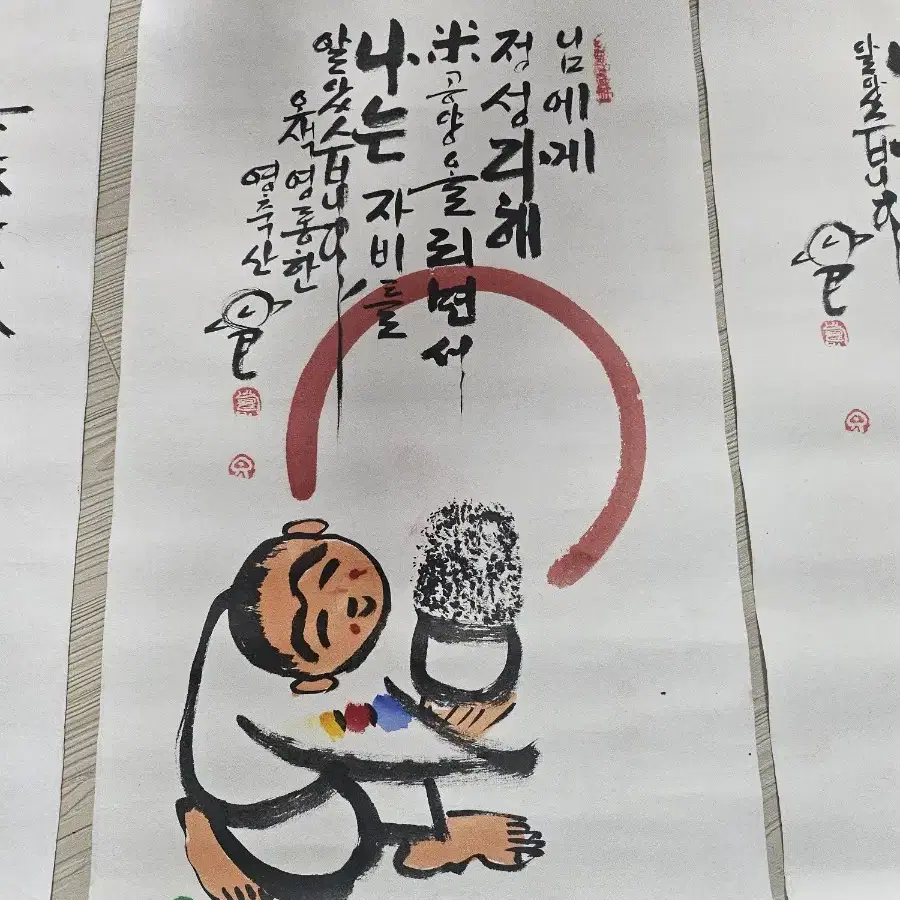 님에게
정성 다해
米공양 올리면서
나는 자비를
알았습니다
영통한
영축산